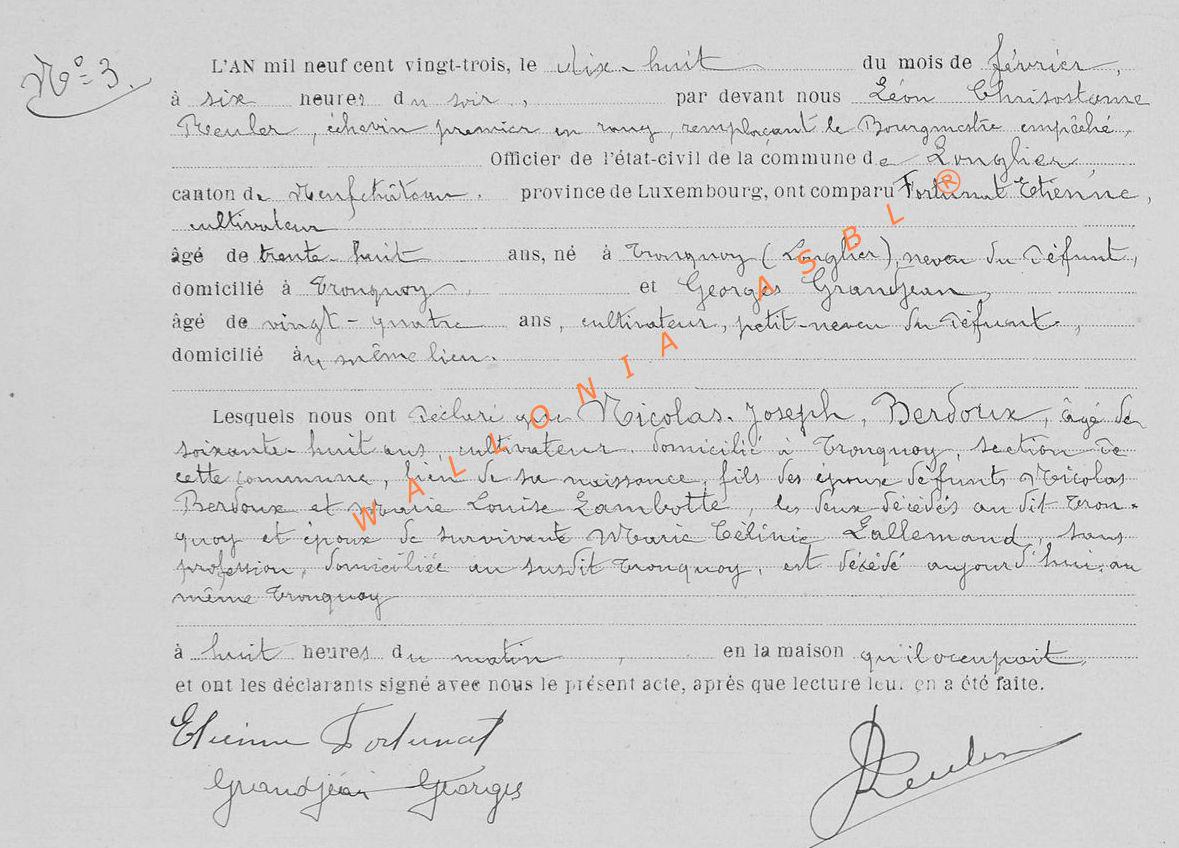 N° 3.
L'AN mil neuf cent vingt-trois, le dix-huit du mois de février,
à six heures du soir, par devant nous Léon Chrisostome
Reuler, échevin premier en rang, remplaçant le Bourgmestre empêché,
Officier de l'état-civil de la commune de Longlier,
canton de Neufchâteau. province de Luxembourg, ont comparu Fortunat Etienne,
cultivateur
âgé de trente-huit ans, né à Tronquoy (Longlier), neveu du défunt,
domicilié à Tronquoy, et Georges Grandjean,
âgé de vingt-quatre ans, cultivateur, petit-neveu du défunt,
domicilié au même lieu.
Lesquels nous ont déclaré que Nicolas-Joseph, Berdoux, âgé de
soixante-huit ans, cultivateur, domicilié à Tronquoy, section de
cette commune, lieu de sa naissance, fils des époux défunts Nicolas
Berdoux et Marie Louise Lambotte, les deux décédés au dit Tron-
quoy et époux de survivante Marie Célinie Lallemand, sans
profession, domiciliée au susdit Tronquoy, est décédé aujourd'hui, au
même Tronquoy
à huit heures du matin, en la maison qu'il occupait,
et ont les déclarants signé avec nous le présent acte, après que lecture leur en a été faite.
Etienne Fortunat
Grandjean Georges
Reuler
WALLONIA ASBL ®